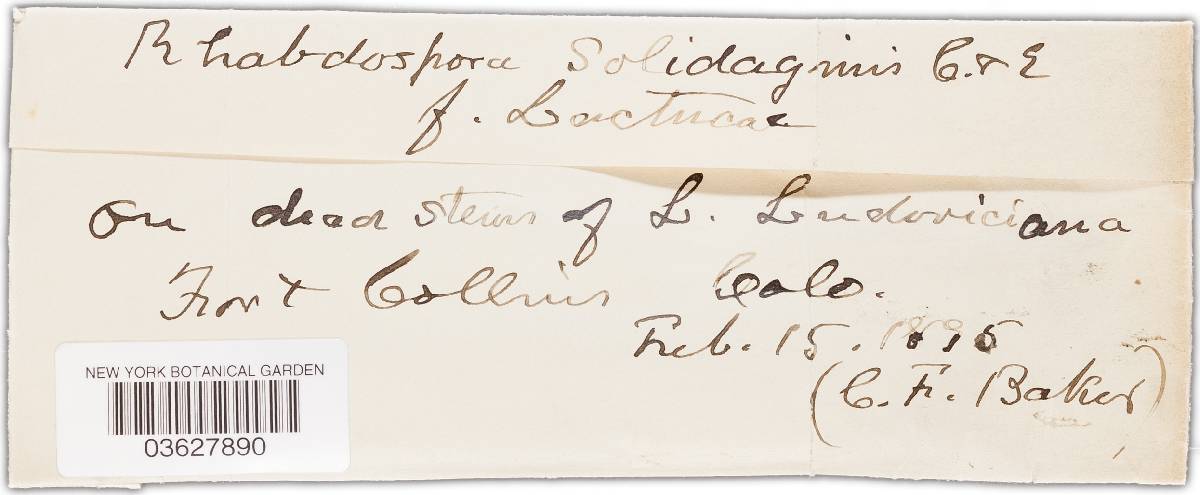 Rhabdospora Solidaginis C. & E
f. Lactucae
on dead stems of L. Ludoviciana
Fort Collins Colo.
Feb. 15. 1895
(C. F. Baker)
NEW YORK BOTANICAL GARDEN
03627890